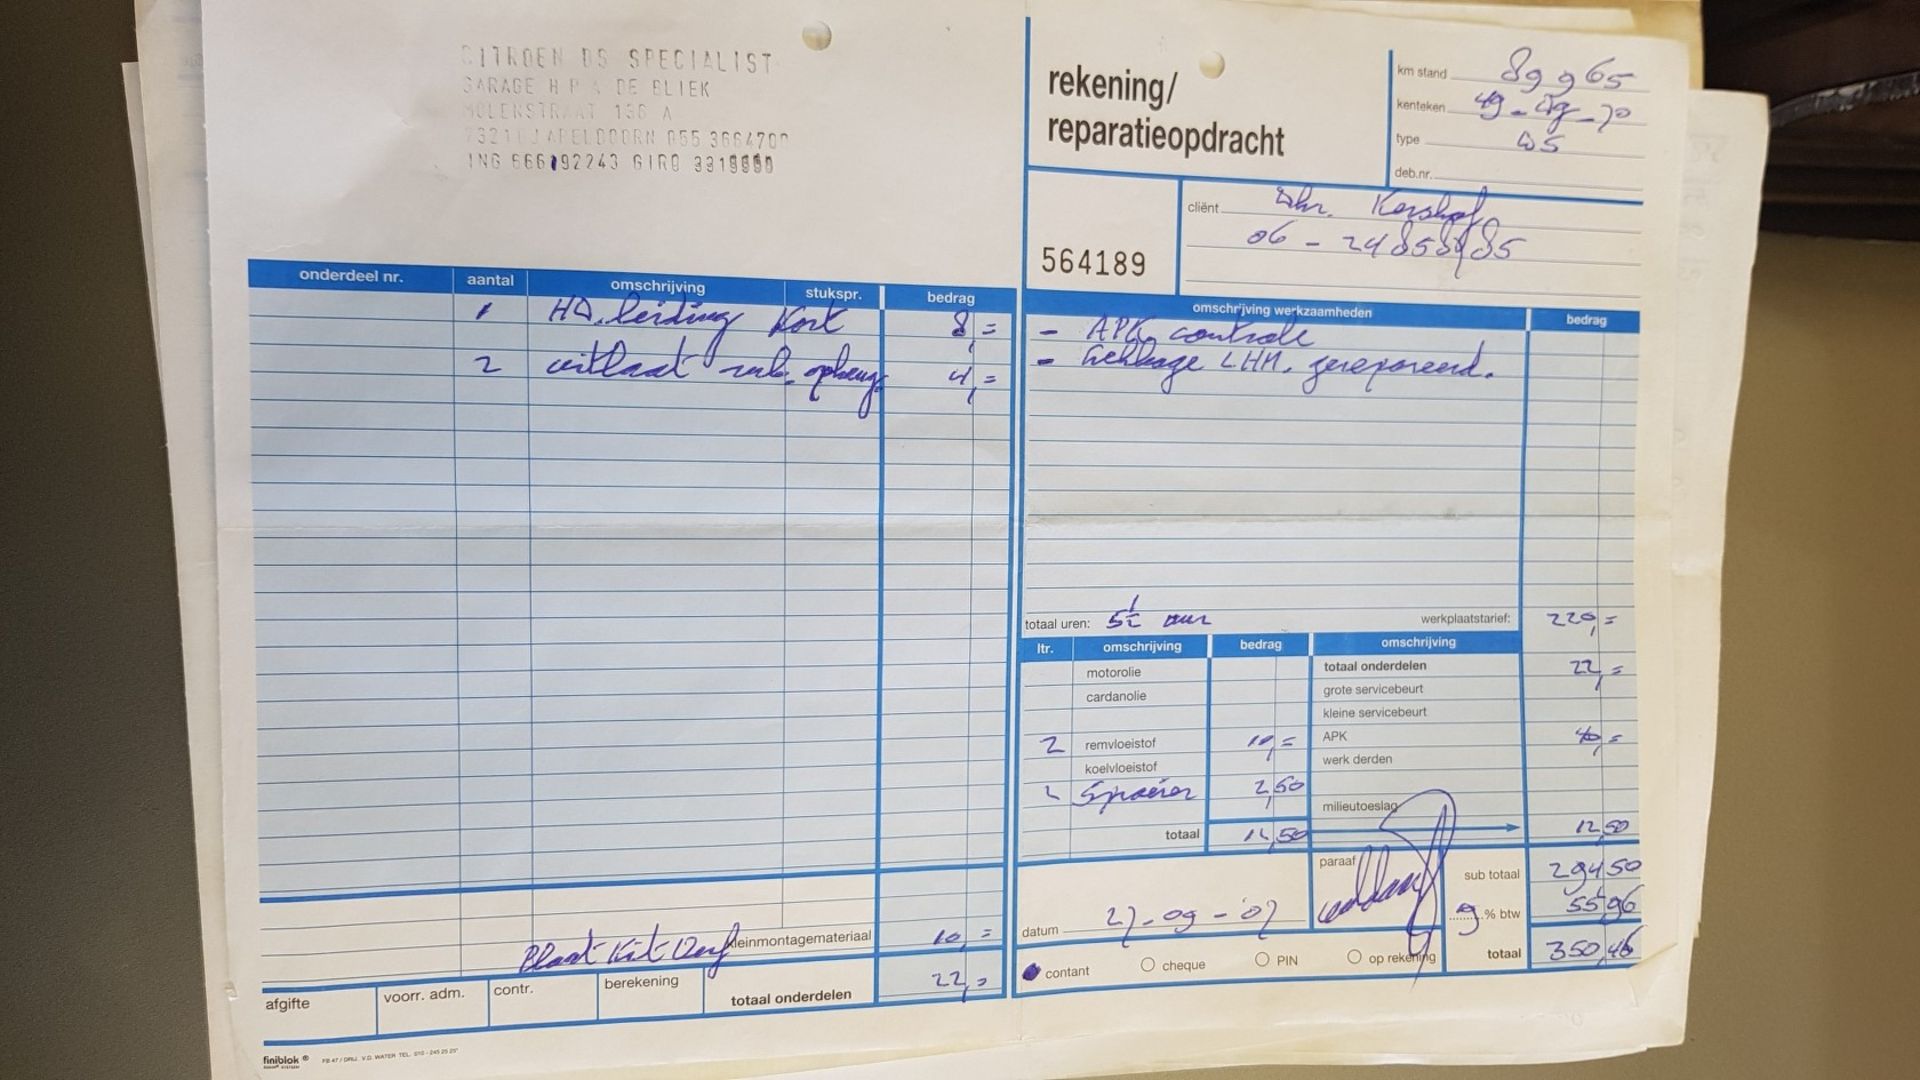 CITROEN DS SPECIALIST
GARAGE H P A DE BLIEK
MOLENSTRAAT 136 A
APELDOORN 055 3664700
ING 666192243 GIRO
rekening/
reparatieopdracht
km stand 89965
kenteken
type DS
deb.nr.
564189
cliënt Dhr.
06 -
onderdeel nr. aantal omschrijving stukspr. bedrag
1 HD. leiding kort 8,=
2 uitlaat rub. ophang. 4,=
Kit Verf kleinmontagemateriaal 10,=
afgifte voorr. adm. contr. berekening totaal onderdelen 22,=
finiblok ®
FB 47 / DRIJ. V.D. WATER TEL. 010 - 245 25 25
omschrijving werkzaamheden bedrag
- APK controle
- Lekkage LHM. gerepareerd.
totaal uren: 5½ uur werkplaatstarief: 220,=
ltr. omschrijving bedrag omschrijving
motorolie totaal onderdelen 22,=
cardanolie grote servicebeurt
kleine servicebeurt
2 remvloeistof 10,= APK 40,=
koelvloeistof werk derden
Sproeier 2,50 milieutoeslag
totaal 12,50 12,50
paraaf
sub totaal 294,50
% btw 55,96
datum 27-09-07
totaal 350,46
contant cheque PIN op rekening